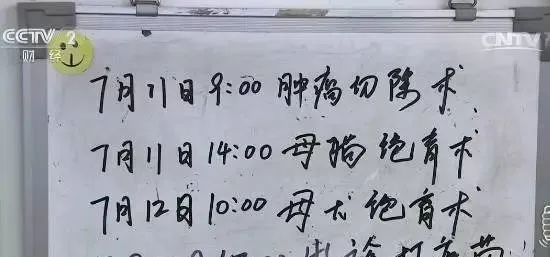 CCTV 2
财经
CNTV
7月11日9:00 肿瘤切除术
7月11日14:00 母猫绝育术
7月12日10:00 母犬绝育术
出诊打疫苗